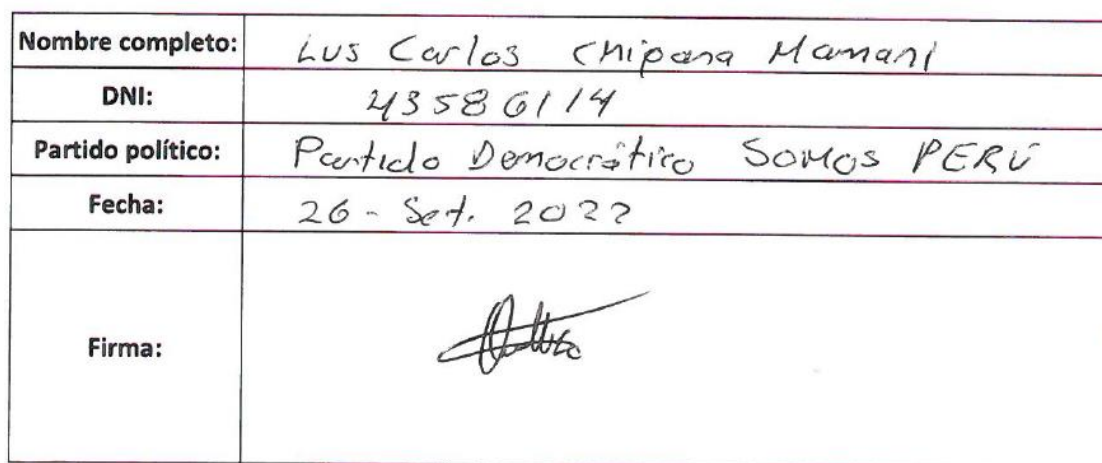 Nombre completo: Lus Carlos Chipana Mamani
DNI: 43586114
Partido político: Partido Democrático SOMOS PERÚ
Fecha: 26 - Set. 2022
Firma: